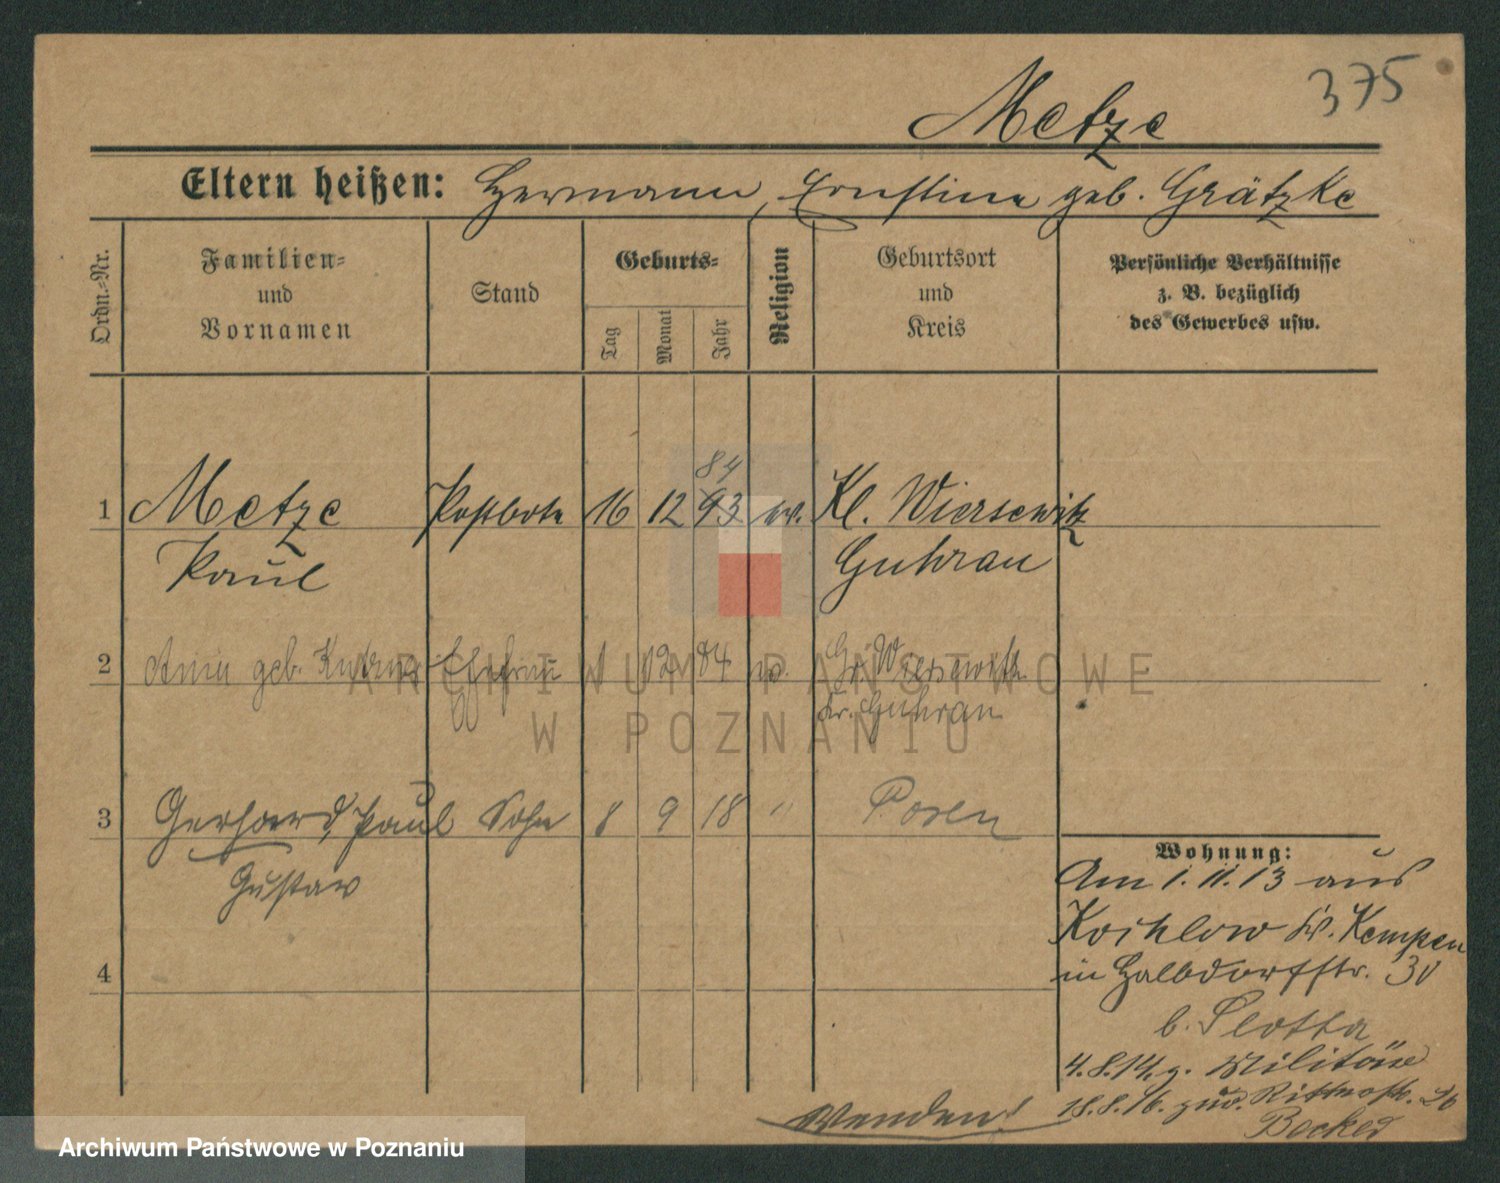 375
Metze
Eltern heißen: Hermann, Ernstine geb. Grätzke
Ordn.-Nr.
Familien-
und
Vornamen
Stand
Geburts-
Tag
Monat
Jahr
Religion
Geburtsort
und
Kreis
Persönliche Verhältnisse
z. B. bezüglich
des Gewerbes usw.
84
1 Metze Postbote 16 12 93 ev. Kl. Wiersewitz
Paul Guhrau
2 geb. Ehefrau 12 84 ev. Gr. Wiersewitz
Kr. Guhrau
3 Gerhard, Paul Sohn 8 9 18 " Posen
Gustav
4
Wohnung:
Am 1. 11. 13 aus
Kochlow Kr. Kempen
in Halbdorfstr. 30
b. Plotka
4. 8. 14. z. Militär
18. 8. 16. zur.
Wenden!
ARCHIWUM PAŃSTWOWE
W POZNANIU
Archiwum Państwowe w Poznaniu